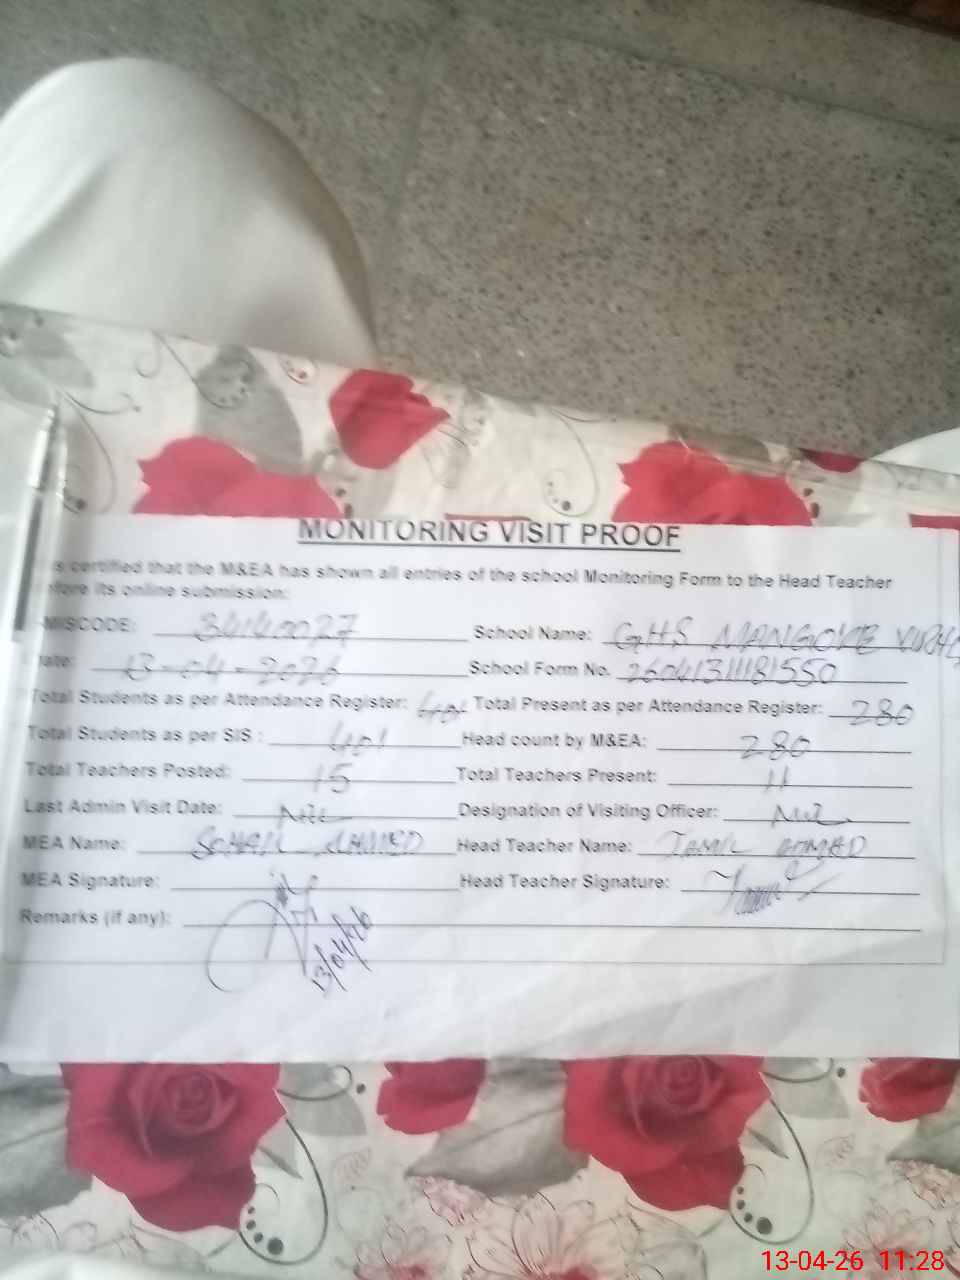 MONITORING VISIT PROOF
is certified that the M&EA has shown all entries of the school Monitoring Form to the Head Teacher
before its online submission:
EMISCODE: 34140027 School Name: GHS
Date: 13-04-2026 School Form No. 26041311181550
Total Students as per Attendance Register: 401 Total Present as per Attendance Register: 280
Total Students as per SIS : 401 Head count by M&EA: 280
Total Teachers Posted: 15 Total Teachers Present: 11
Last Admin Visit Date: Nil Designation of Visiting Officer: Nil
MEA Name: SOHAIL AHMED Head Teacher Name: JAMIL AHMAD
MEA Signature: Head Teacher Signature:
Remarks (if any):
13/04/26
13-04-26 11:28